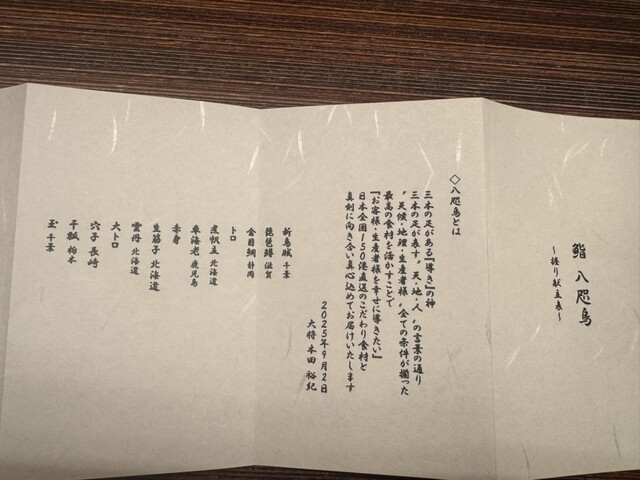 鮨 八咫烏
〜握り献立表〜
◇八咫烏とは
三本の足がある『導き』の神
三本の足が表す”天・地・人”の言葉の通り
”天候・地理・生産者様”全ての条件が揃った
最高の食材を活かすことで
『お客様・生産者様を幸せに導きたい』
日本全国150港直送のこだわり食材と
真剣に向き合い真心込めてお届けいたします
2025年9月2日
大将 本田 裕紀
新烏賊 千葉
琵琶鱒 滋賀
金目鯛 静岡
トロ
煮帆立 北海道
車海老 鹿児島
赤身
生筋子 北海道
雲丹 北海道
大トロ
穴子 長崎
干瓢 栃木
玉 千葉